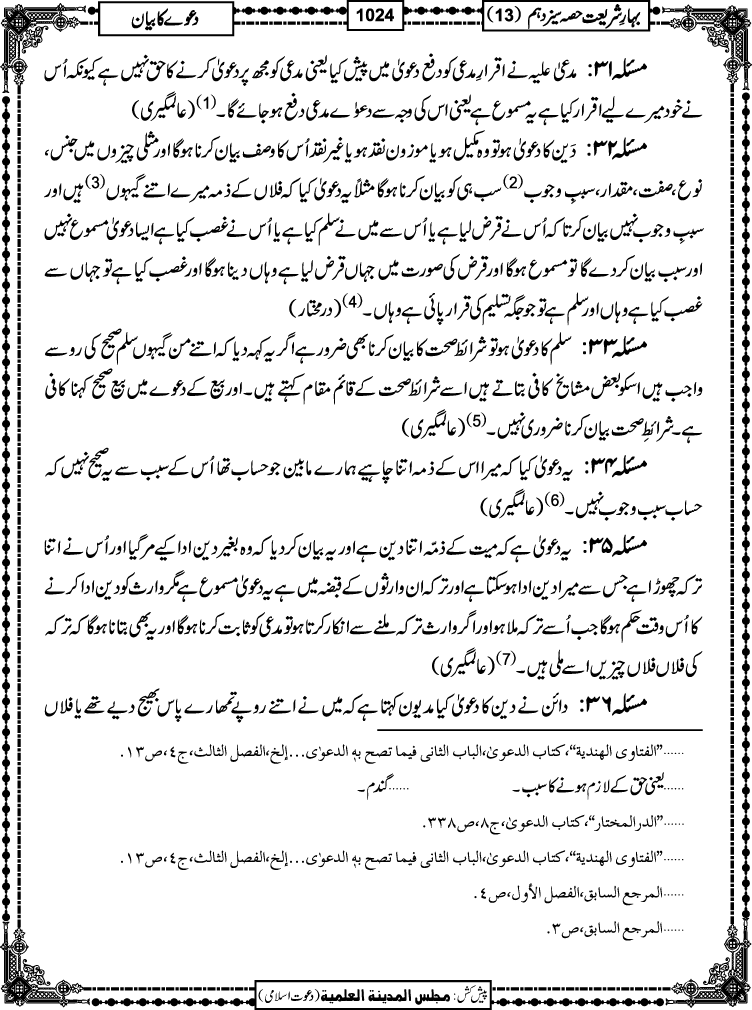 بہارِشریعت حصہ سیزدہم (13)
1024
دعوے کا بیان
مسئلہ ۳۱: مدعیٰ علیہ نے اقرارِ مدعی کو دفع دعویٰ میں پیش کیا یعنی مدعی کو مجھ پر دعویٰ کرنے کا حق نہیں ہے کیونکہ اُس
نے خود میرے لیے اقرار کیا ہے یہ مسموع ہے یعنی اس کی وجہ سے دعوائے مدعی دفع ہو جائے گا۔(1) (عالمگیری)
مسئلہ ۳۲: دَین کا دعویٰ ہو تو وہ مکیل ہو یا موزون نقد ہو یا غیر نقد اُس کا وصف بیان کرنا ہوگا اور مثلی چیزوں میں جنس،
نوع، صفت، مقدار، سببِ وجوب (2) سب ہی کو بیان کرنا ہوگا مثلاً یہ دعویٰ کیا کہ فلاں کے ذمہ میرے اتنے گیہوں (3) ہیں اور
سببِ وجوب نہیں بیان کرتا کہ اُس نے قرض لیا ہے یا اُس سے میں نے سلم کیا ہے یا اُس نے غصب کیا ہے ایسا دعویٰ مسموع نہیں
اور سبب بیان کر دے گا تو مسموع ہوگا اور قرض کی صورت میں جہاں قرض لیا ہے وہاں دینا ہوگا اور غصب کیا ہے تو جہاں سے
غصب کیا ہے وہاں اور سلم ہے تو جو جگہ تسلیم کی قرار پائی ہے وہاں۔(4) (درمختار)
مسئلہ ۳۳: سلم کا دعویٰ ہو تو شرائط صحت کا بیان کرنا بھی ضرور ہے اگر یہ کہہ دیا کہ اتنے من گیہوں سلم صحیح کی رو سے
واجب ہیں اسکو بعض مشایخ کافی بتاتے ہیں اسے شرائط صحت کے قائم مقام کہتے ہیں۔ اور بیع کے دعوے میں بیع صحیح کہنا کافی
ہے۔ شرائطِ صحت بیان کرنا ضروری نہیں۔(5) (عالمگیری)
مسئلہ ۳۴: یہ دعویٰ کیا کہ میرا اس کے ذمہ اتنا چاہیے ہمارے مابین جو حساب تھا اُس کے سبب سے یہ صحیح نہیں کہ
حساب سبب وجوب نہیں۔(6) (عالمگیری)
مسئلہ ۳۵: یہ دعویٰ ہے کہ میت کے ذمّہ اتنا دین ہے اور یہ بیان کر دیا کہ وہ بغیر دین ادا کیے مر گیا اور اُس نے اتنا
ترکہ چھوڑا ہے جس سے میرا دین ادا ہو سکتا ہے اور ترکہ ان وارثوں کے قبضہ میں ہے یہ دعویٰ مسموع ہے مگر وارث کو دین ادا کرنے
کا اُس وقت حکم ہوگا جب اُسے ترکہ ملا ہو اور اگر وارث ترکہ ملنے سے انکار کرتا ہو تو مدعی کو ثابت کرنا ہوگا اور یہ بھی بتانا ہوگا کہ ترکہ
کی فلاں فلاں چیزیں اسے ملی ہیں۔(7) (عالمگیری)
مسئلہ ۳۶: دائن نے دین کا دعویٰ کیا مدیون کہتا ہے کہ میں نے اتنے روپے تمھارے پاس بھیج دیے تھے یا فلاں
......"الفتاوى الهندية"، كتاب الدعوىٰ، الباب الثانى فيما تصح به الدعوٰى...إلخ، الفصل الثالث، ج٤، ص١٣.
......یعنی حق کے لازم ہونے کا سبب۔ ......گندم۔
......"الدرالمختار"، كتاب الدعوىٰ، ج٨، ص٣٣٨.
......"الفتاوى الهندية"، كتاب الدعوىٰ، الباب الثانى فيما تصح به الدعوٰى...إلخ، الفصل الثالث، ج٤، ص١٣.
......المرجع السابق، الفصل الأول، ص٤.
......المرجع السابق، ص٣.
پیش کش: مجلس المدينة العلمية (دعوت اسلامی)